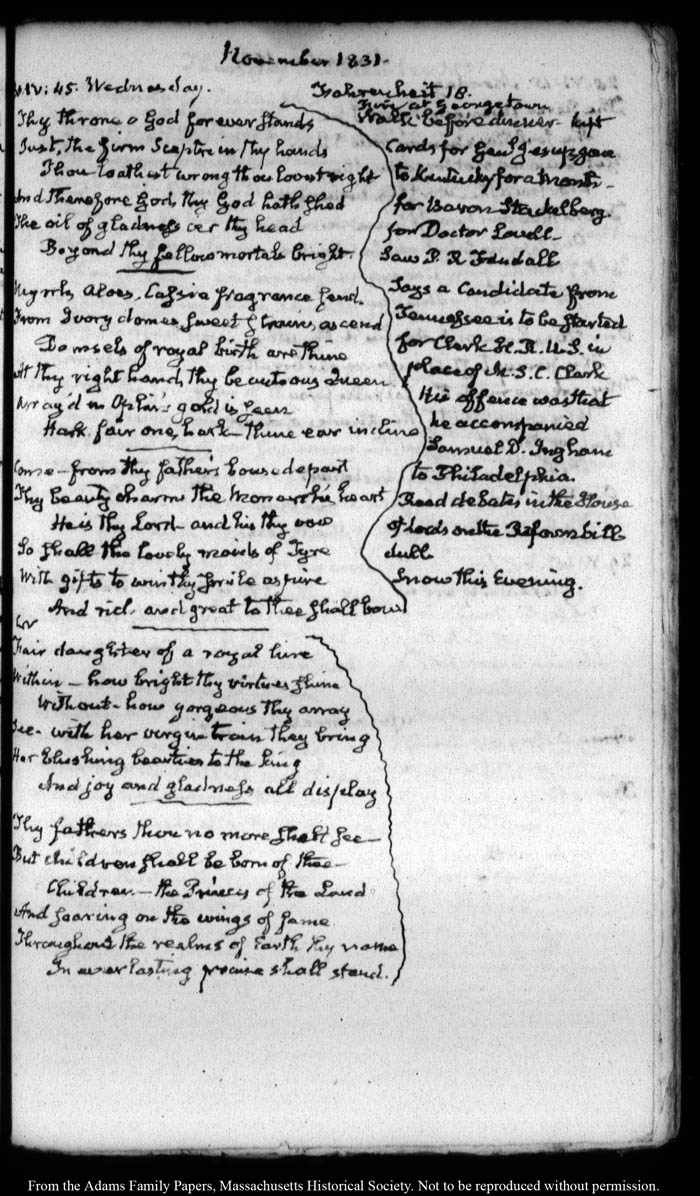 November 1831.
XIV: 45. Wednesday.
Thy throne o God forever stands
Just, the firm Sceptre in thy hands
Thou loathest wrong thou lovest right
And therefore God, thy God hath shed
The oil of gladness oer thy head
Beyond thy fellow mortals bright.
Myrrh, Aloes, Cassia fragrance send.
From Ivory domes sweet strains ascend
Damsels of royal birth are thine
At thy right hand, thy beauteous Queen
Array'd in Ophir's gold is seen
Hark fair one, hark - thine ear incline
Come - from thy father's house depart
Thy beauty charms the Monarch's heart
He is thy Lord - and his thy vow
So shall the lovely maids of Tyre
With gifts to win thy smile aspire
And rich and great to thee shall bow
Fair daughter of a royal line
Within - how bright thy virtues shine
Without - how gorgeous thy array
See - with her virgin train they bring
Her blushing beauties to the king
And joy and gladness all display
Thy fathers thou no more shalt see -
But children shall be born of thee -
Children - the Princes of the Land
And soaring on the wings of fame
Throughout the realms of Earth thy name
In everlasting praise shall stand.
Fahrenheit 18.
Fire at Georgetown
Walk before dinner - left
Cards for Genl. Jesup gone
to Kentucky for a Month -
for Baron Stackelberg.
for Doctor Lovell -
Saw P. R. Fendall
Says a Candidate from
Tennessee is to be started
for Clerk H. R. U.S. in
place of M. S. C. Clark
His offence was that
he accompanied
Samuel D. Ingham
to Philadelphia.
Read debates in the House
of Lords on the Reform bill
dull
Snow this Evening.
From the Adams Family Papers, Massachusetts Historical Society. Not to be reproduced without permission.